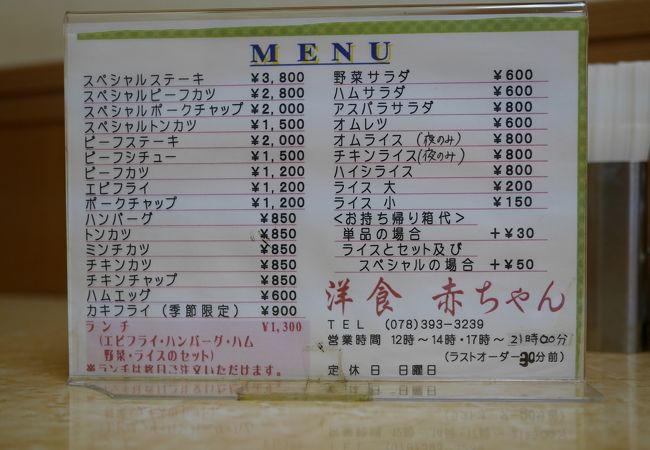 MENU
スペシャルステーキ ¥3,800
スペシャルビーフカツ ¥2,800
スペシャルポークチャップ ¥2,000
スペシャルトンカツ ¥1,500
ビーフステーキ ¥2,000
ビーフシチュー ¥1,500
ビーフカツ ¥1,200
エビフライ ¥1,200
ポークチャップ ¥1,200
ハンバーグ ¥850
トンカツ ¥850
ミンチカツ ¥850
チキンカツ ¥850
チキンチャップ ¥850
ハムエッグ ¥600
カキフライ (季節限定) ¥900
ランチ ¥1,300
(エビフライ・ハンバーグ・ハム
野菜・ライスのセット)
※ランチは終日ご注文いただけます。
野菜サラダ ¥600
ハムサラダ ¥600
アスパラサラダ ¥800
オムレツ ¥600
オムライス (夜のみ) ¥800
チキンライス(夜のみ) ¥800
ハイシライス ¥800
ライス 大 ¥200
ライス 小 ¥150
<お持ち帰り箱代>
単品の場合 +¥30
ライスとセット及び
スペシャルの場合 +¥50
洋食 赤ちゃん
TEL (078)393-3239
営業時間 12時〜14時・17時〜21時00分
(ラストオーダー30分前)
定休日 日曜日